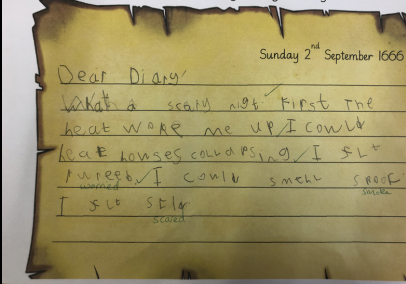 Sunday 2nd September 1666
Dear Diary
What a scary night. First the
heat woke me up / I could
hear houses collapsing / I felt
/ I could smell smook
worried smoke
I felt
scared